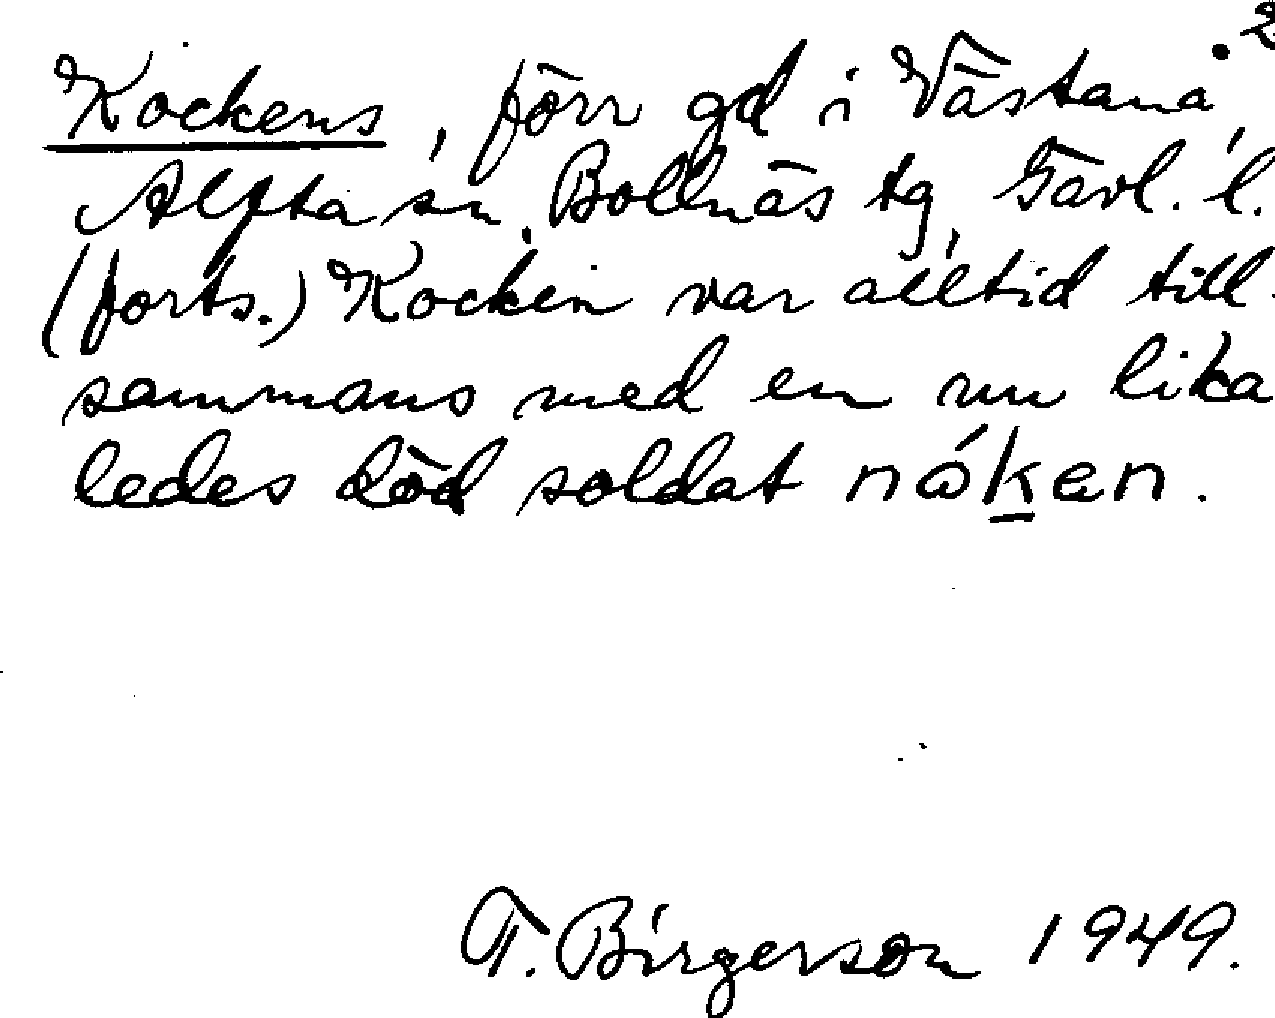 2
Kockens, förr gd i Västanå,
Alfta sn, Bollnäs tg, Gävl. l.
(forts.) Kocken var alltid till-
sammans med en nu lika
ledes död soldat nóken.
T. Birgerson 1949.